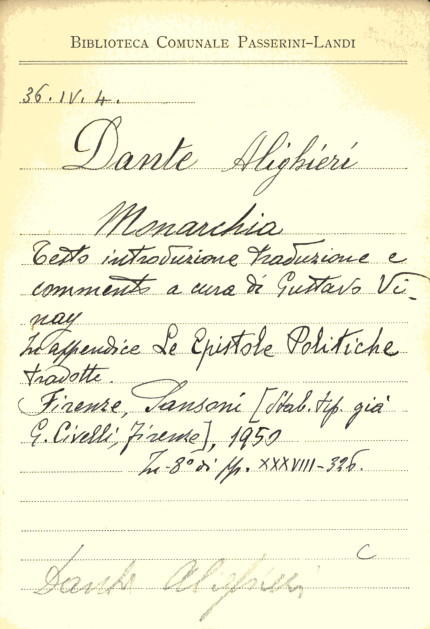 BIBLIOTECA COMUNALE PASSERINI-LANDI
36.IV.4.
Dante Alighieri
Monarchia
Testo introduzione traduzione e
commento a cura di Gustavo Vi-
nay
In appendice Le Epistole Politiche
tradotte.
Firenze, Sansoni [Stab. tip. già
G. Civelli, Firenze], 1950
In-8° di pp. XXXVIII-326.
C
Dante Alighieri